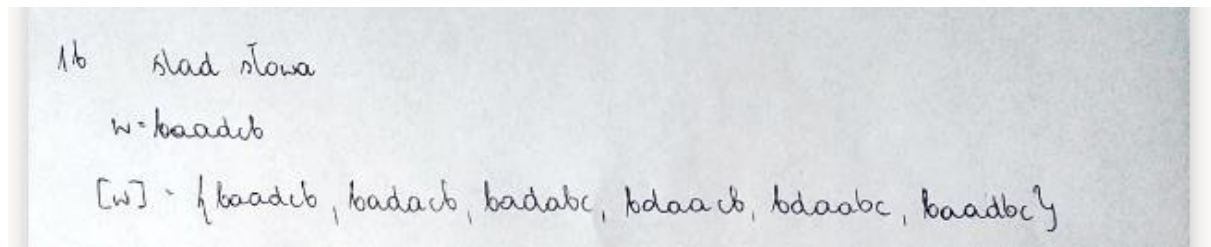 1b ślad słowa
w = baadcb
[w] = {baadcb, badacb, badabc, bdaacb, bdaabc, baadbc}